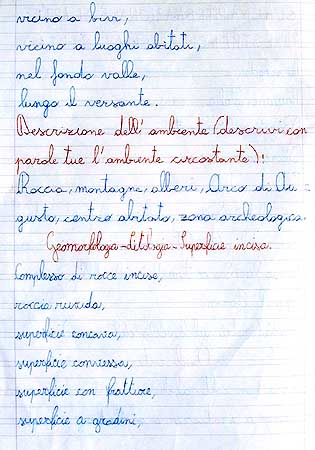 vicino a bivi,
vicino a luoghi abitati,
nel fondo valle,
lungo il versante.
Descrizione dell'ambiente (descrivi con
parole tue l'ambiente circostante):
Roccia, montagne, alberi, Arco di Au-
gusto, centro abitato, zona archeologica.
Geomorfologia - Litologia - Superficie incisa.
Complesso di rocce incise,
roccia ruvida,
superficie concava,
superficie convessa,
superficie con fratture,
superficie a gradini,